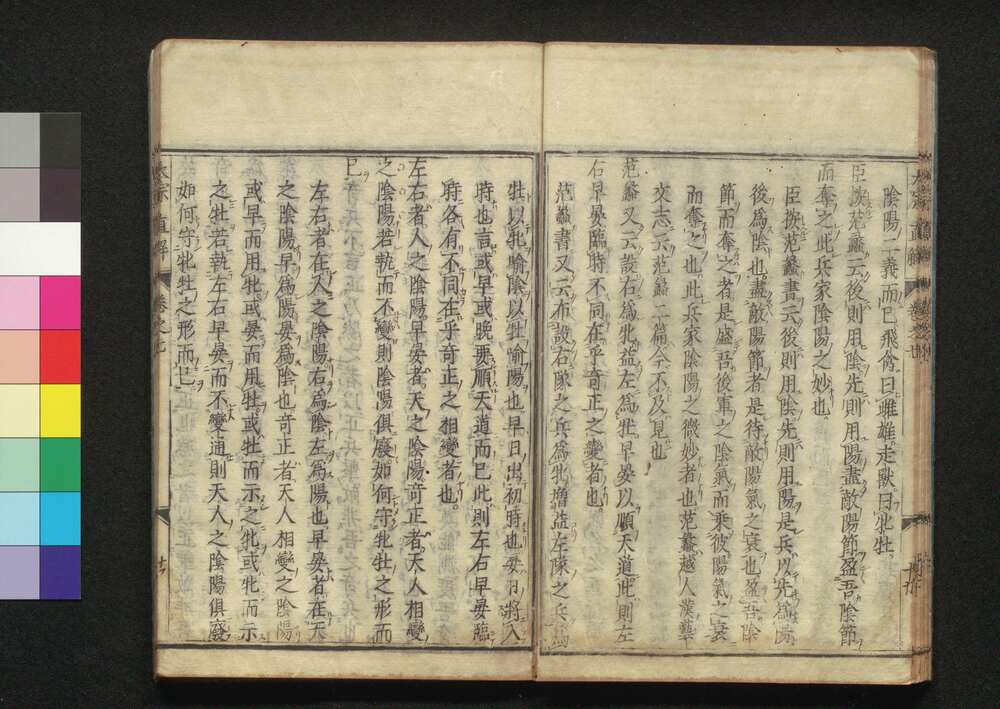 陰陽二義而已飛禽曰雌雄走獸曰牝牡
臣按范蠡云後則用陰先則用陽盡敵陽節盈吾陰節
而奪之此兵家陰陽之妙也
臣按范蠡書云後則用陰先則用陽是兵以先爲陽
後爲陰也盡敵陽節者是待敵陽氣之衰也盈吾陰
節而奪之者是盛吾後軍之陰氣而乘彼陽氣之衰
而奪之也此兵家陰陽之微妙者也范蠡越人漢藝
文志云范蠡二篇今不及見也
范蠡又云設右爲牝益左爲牡早晏以順天道此則左
右早晏臨時不同在乎奇正之變者也
范蠡書又云布設右隊之兵爲牝增益左隊之兵爲
牡以牝喻陰以牡喻陽也早日出初時也晏日將入
時也言或早或晚要順天道而已此則左右早晏臨
時各有不同在乎奇正之相變者也
左右者人之陰陽早晏者天之陰陽奇正者天人相變
之陰陽若執而不變則陰陽俱廢如何守牝牡之形而
已
左右者在人之陰陽右爲陰左爲陽也早晏者在天
之陰陽早爲陽晏爲陰也奇正者天人相變之陰陽
或早而用牝或晏而用牡或牡而示之牝或牝而示
之牡若執左右早晏而不變通則天人之陰陽俱廢
如何守牝牡之形而已
直解 卷之